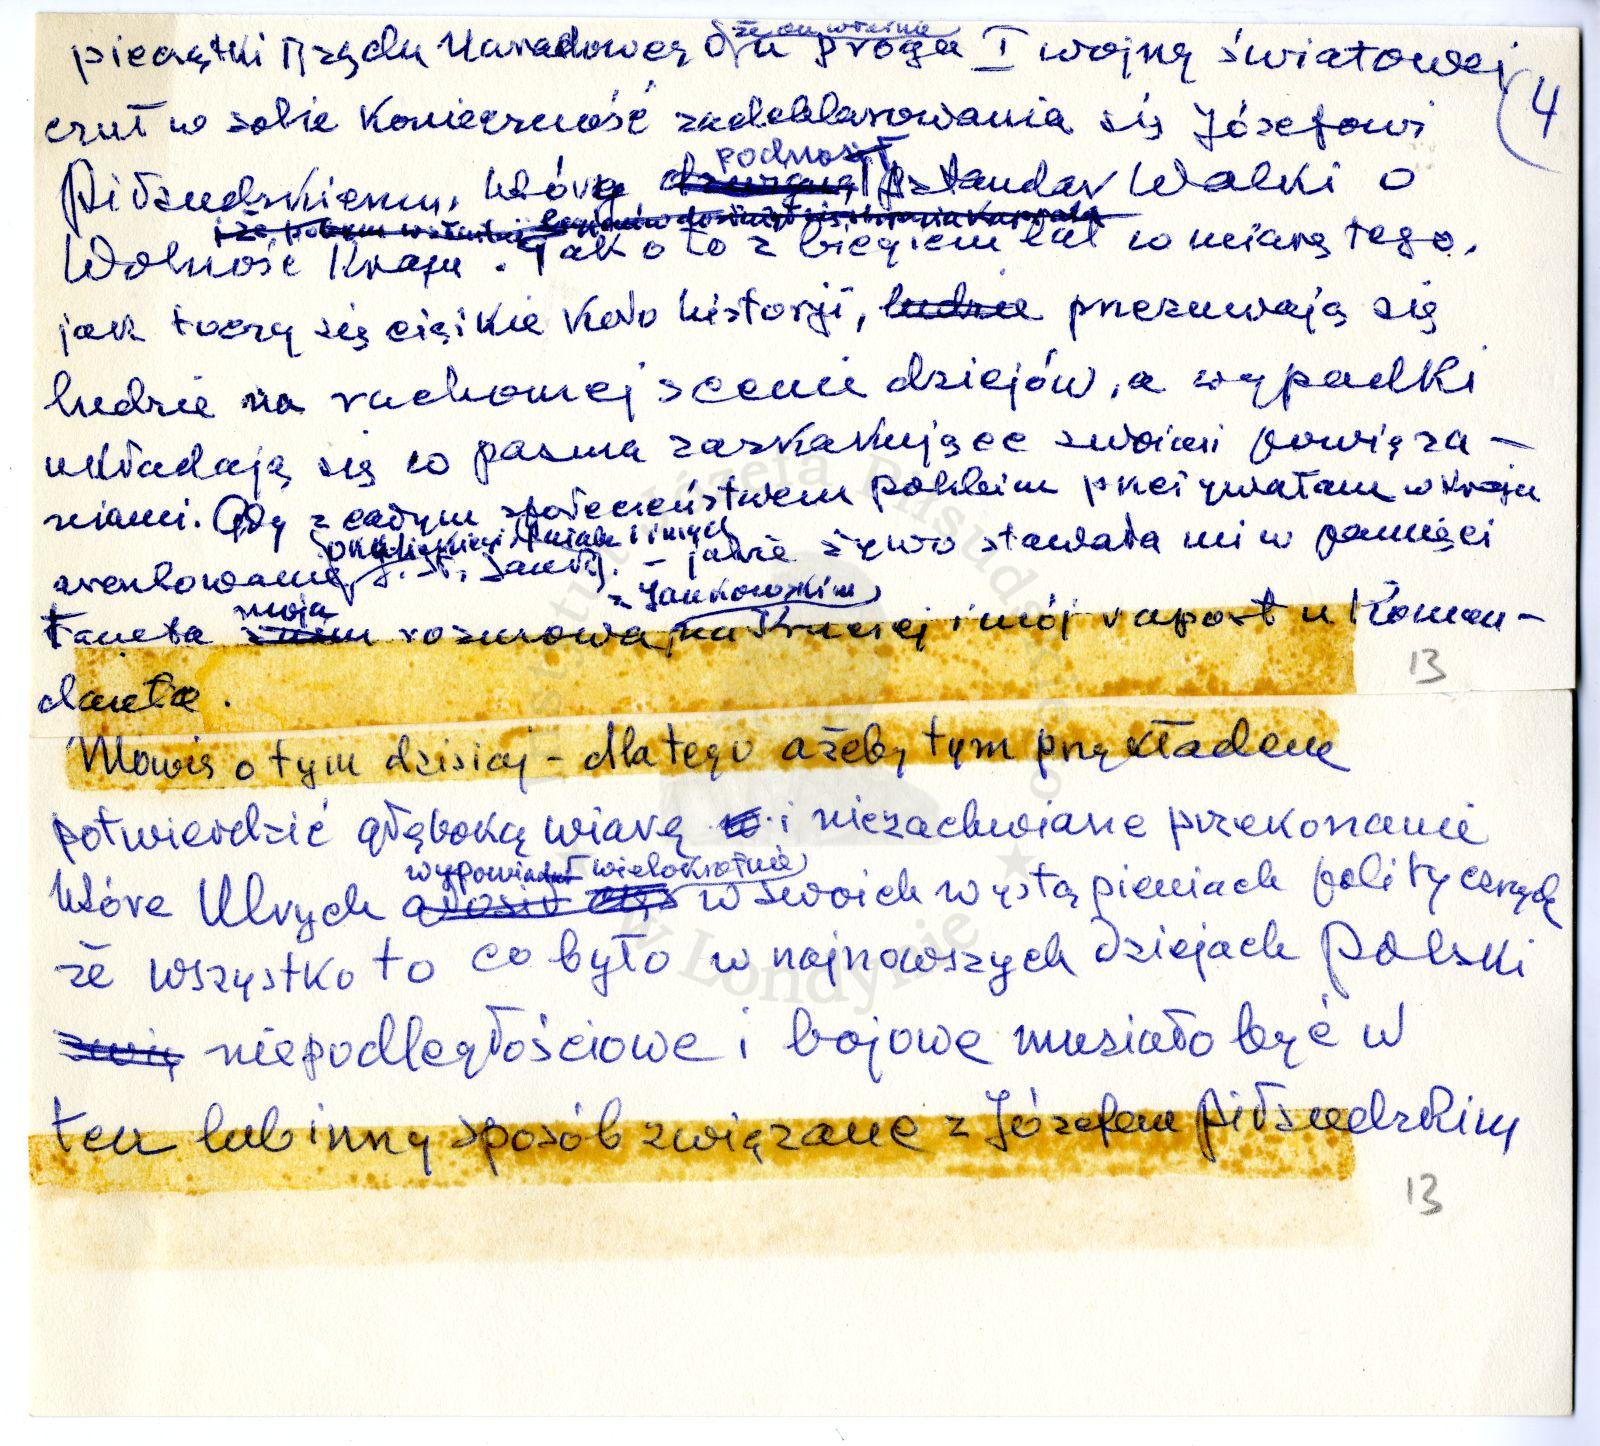 że on właśnie
pieczątki Rządu Narodowego u proga I wojny światowej
4
czuł w sobie konieczność zadeklarowania się Józefowi
podnosił
Piłsudskiemu, który sztandar Walki o
Wolność Kraju. Jako to z biegiem lat w miarę tego,
jak toczy się ciężkie koło historji, ludzie przesuwają się
ludzie na ruchomej scenie dziejów, a wypadki
układają się w pasma zaskakujące swoimi powiąza-
niami. Gdy z całym społeczeństwem polskim przeżywałam w kraju
i innych
aresztowanie - jakże żywo stawała mi w pamięci
z Jankowskim
moja
rozmowa na Kruczej i mój raport u Komen-
danta.
13
Mówię o tym dzisiaj - dlatego ażeby tym przykładem
potwierdzić głęboką wiarę i niezachwiane przekonanie
wypowiadał wielokrotnie
które Ulrych głosił w swoich wystąpieniach politycznych
że wszystko to co było w najnowszych dziejach Polski
niepodległościowe i bojowe musiało być w
ten lub inny sposób związane z Józefem Piłsudskim
13
Instytut Józefa Piłsudskiego
w Londynie